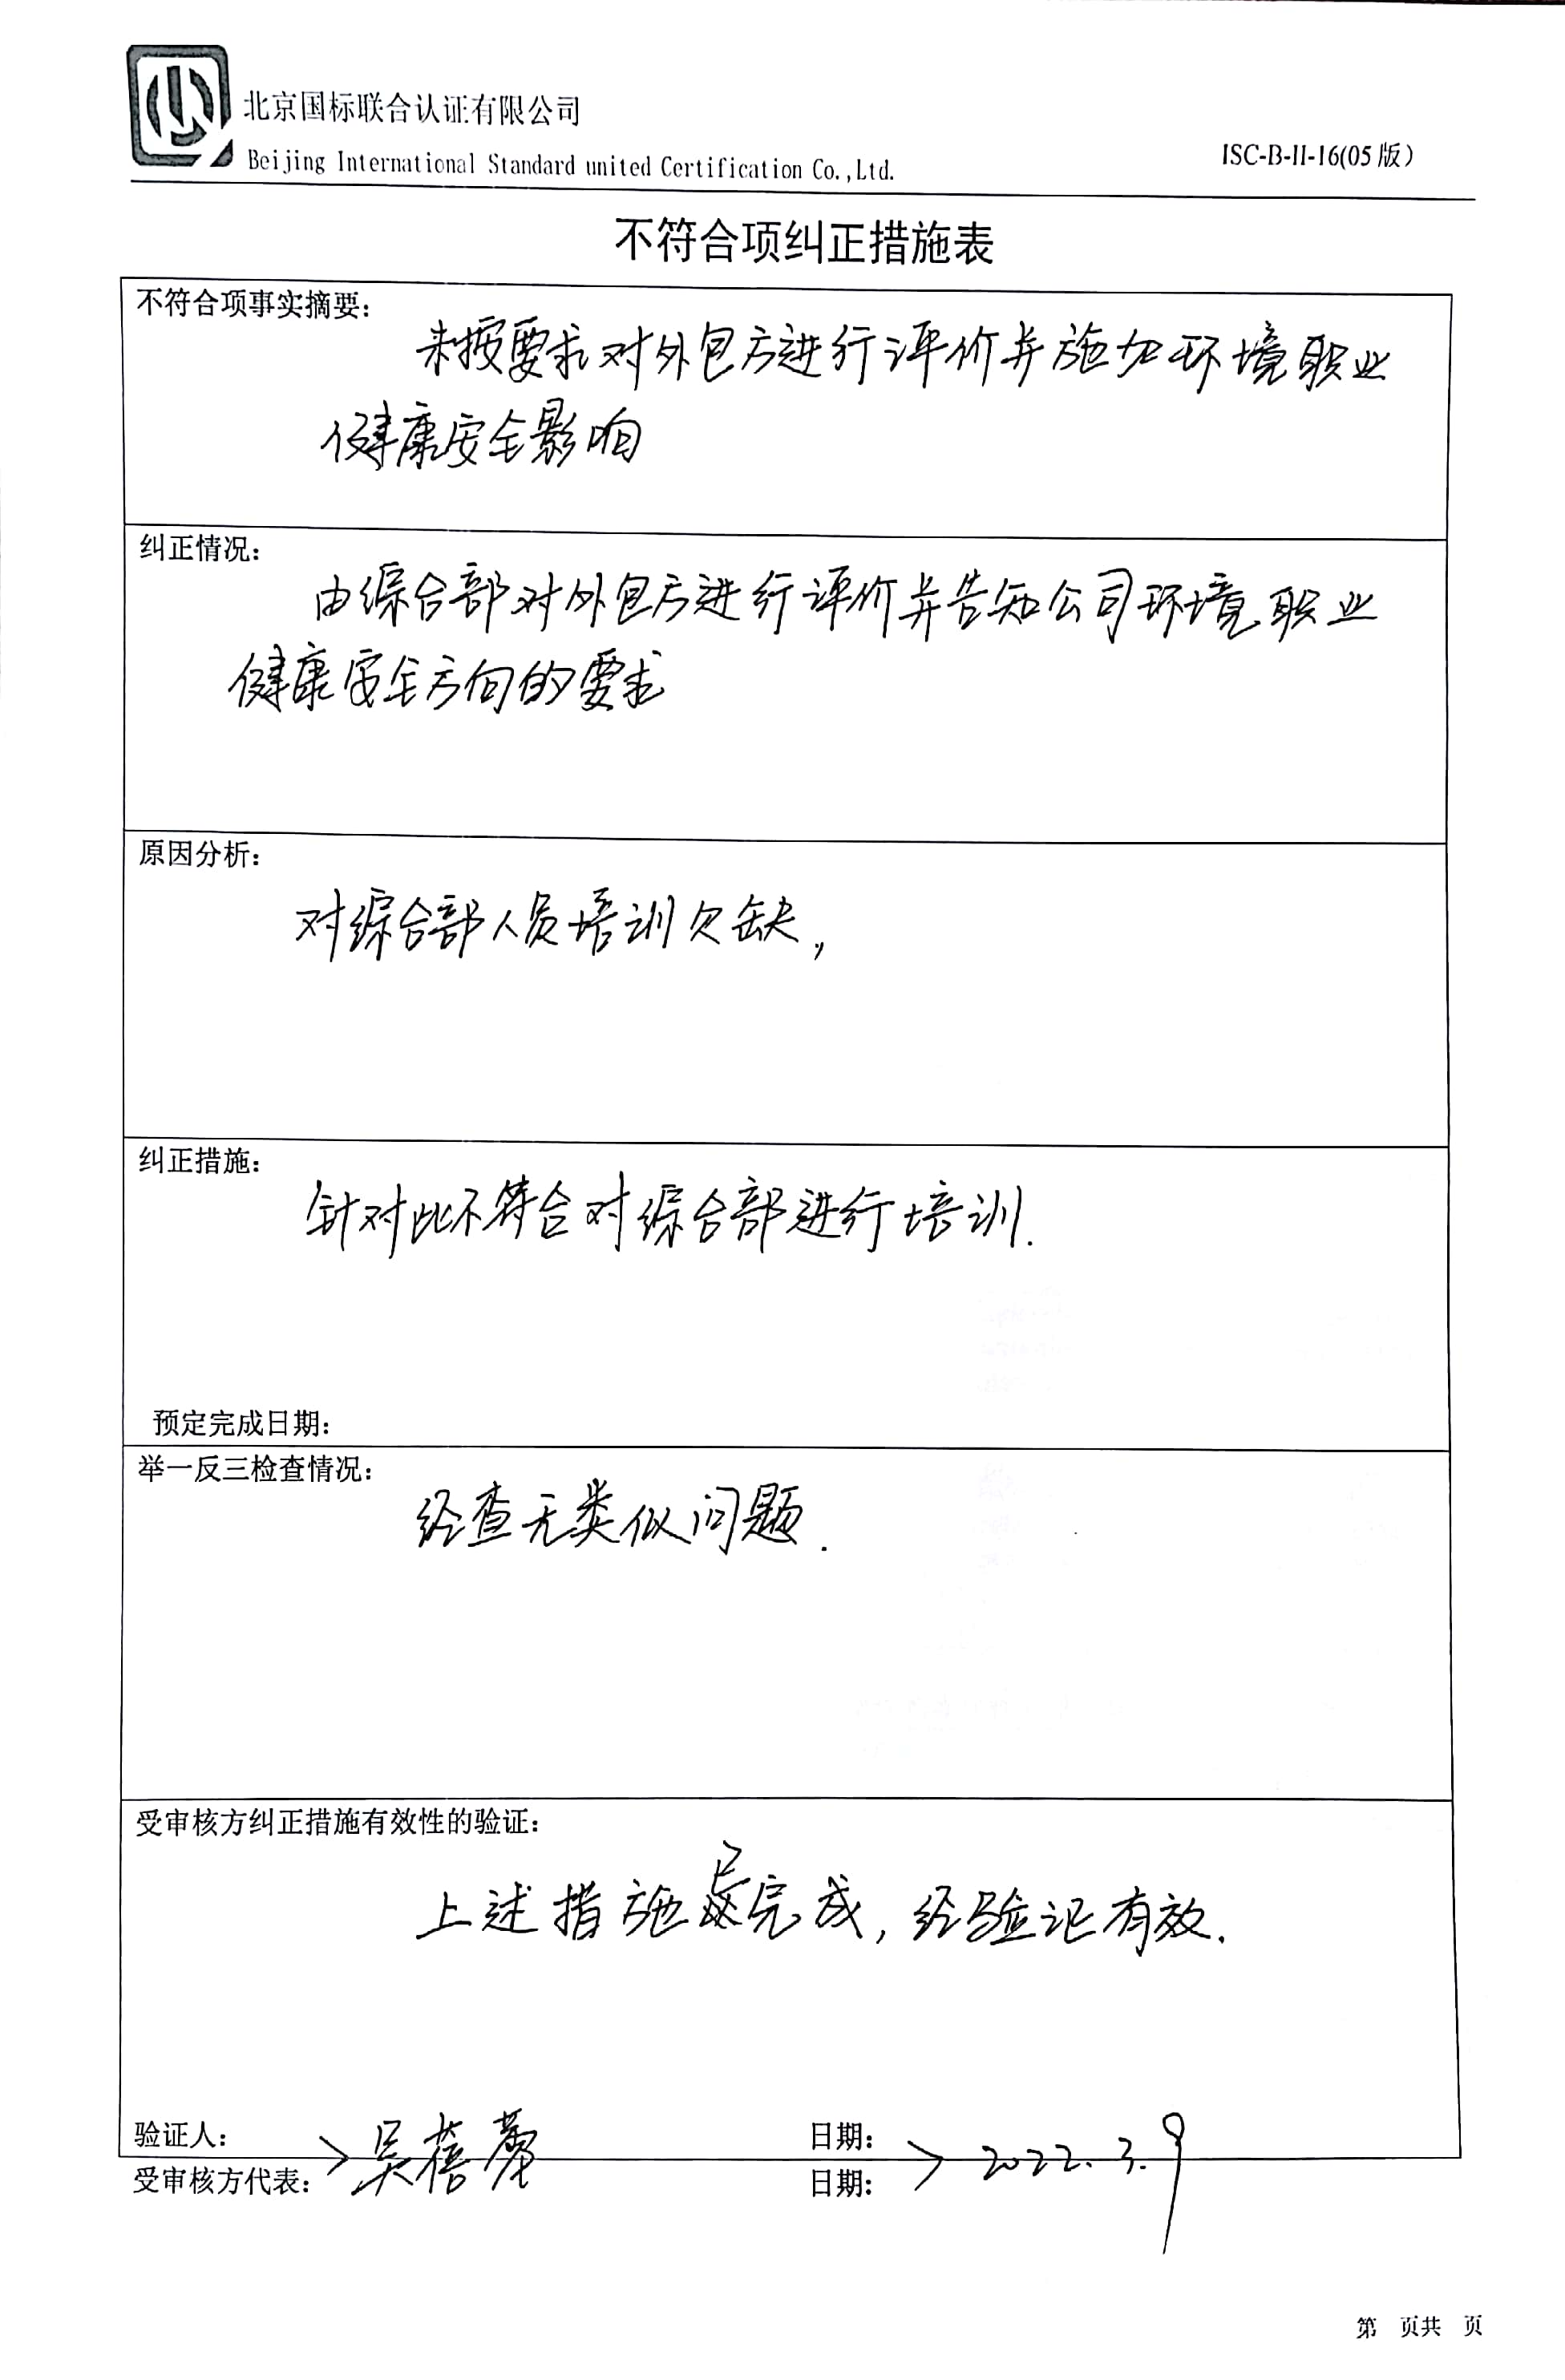 北京国标联合认证有限公司
Beijing International Standard united Certification Co.,Ltd.
ISC-B-II-16(05版)
不符合项纠正措施表
不符合项事实摘要:
未按要求对外包方进行评价并施加环境职业
健康安全影响
纠正情况:
由综合部对外包方进行评价并告知公司环境职业
健康安全方向的要求
原因分析:
对综合部人员培训欠缺,
纠正措施:
针对此不符合对综合部进行培训.
预定完成日期:
举一反三检查情况:
经查无类似问题.
受审核方纠正措施有效性的验证:
上述措施已完成,经验证有效.
验证人:
日期:
受审核方代表:
吴蓓
日期:
2022.3.9
第 页共 页